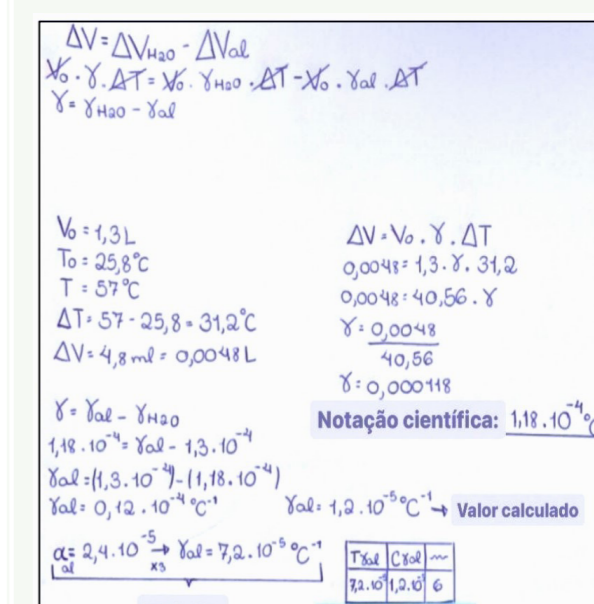 ΔV = ΔVH2O - ΔVal
V₀ . γ . ΔT = V₀ . γH2O . ΔT - V₀ . γal . ΔT
γ = γH2O - γal
V₀ = 1,3 L
T₀ = 25,8°C
T = 57°C
ΔT = 57 - 25,8 = 31,2°C
ΔV = 4,8 ml = 0,0048 L
ΔV = V₀ . γ . ΔT
0,0048 = 1,3 . γ . 31,2
0,0048 = 40,56 . γ
γ = 0,0048
40,56
γ = 0,000118
Notação científica: 1,18 . 10⁻⁴ °C
γ = γal - γH2O
1,18 . 10⁻⁴ = γal - 1,3 . 10⁻⁴
γal = (1,3 . 10⁻⁴) - (1,18 . 10⁻⁴)
γal = 0,12 . 10⁻⁴ °C⁻¹
γal = 1,2 . 10⁻⁵ °C⁻¹ → Valor calculado
αal = 2,4 . 10⁻⁵ →x3 γal = 7,2 . 10⁻⁵ °C⁻¹
Tγal Cγal
7,2 . 10⁻⁵ 1,2 . 10⁻⁵ 6